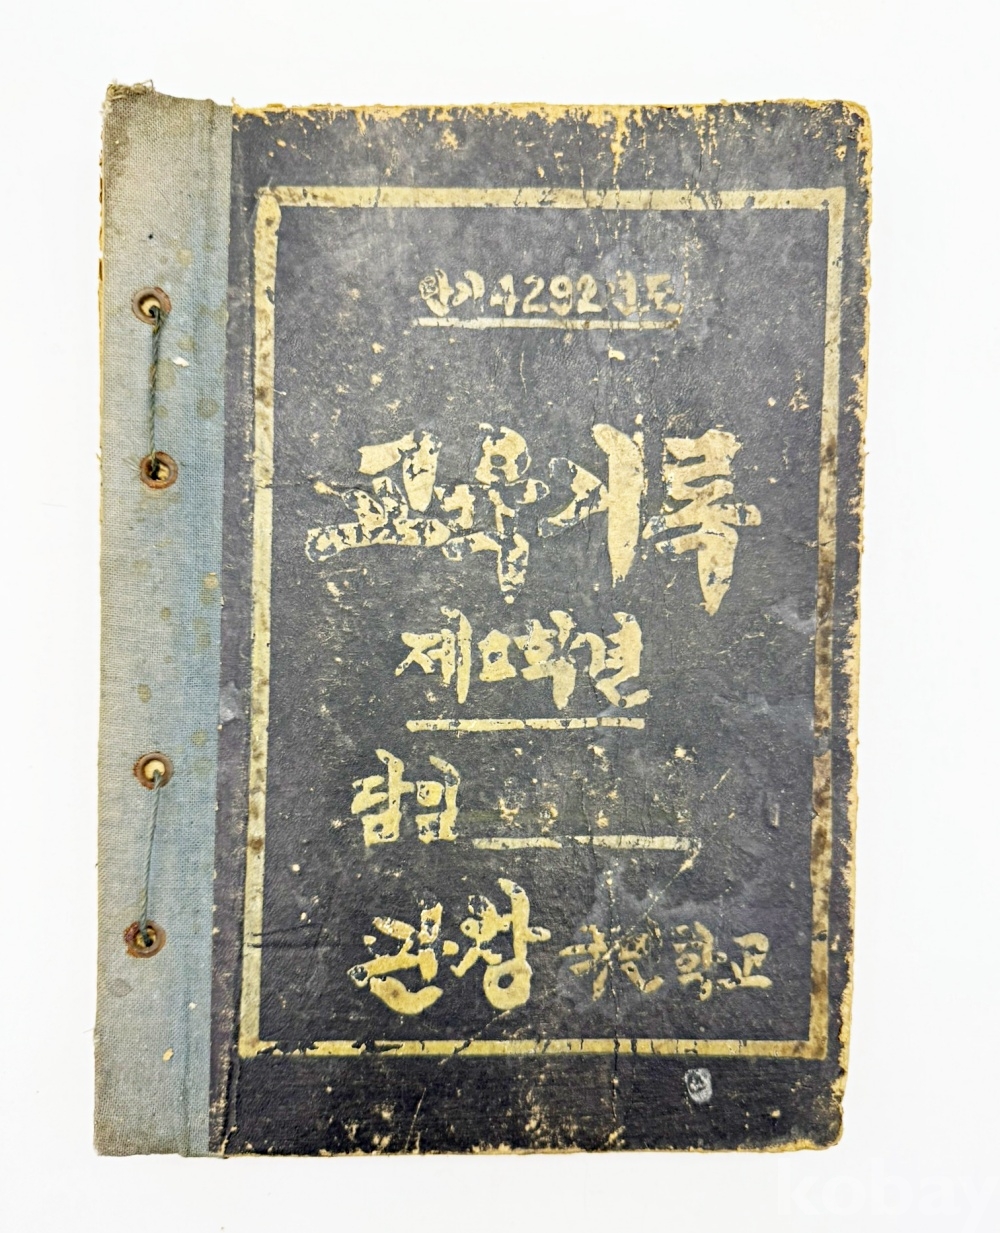 단기4292년도
교육기록
제 학년
담임
국민학교
kobay